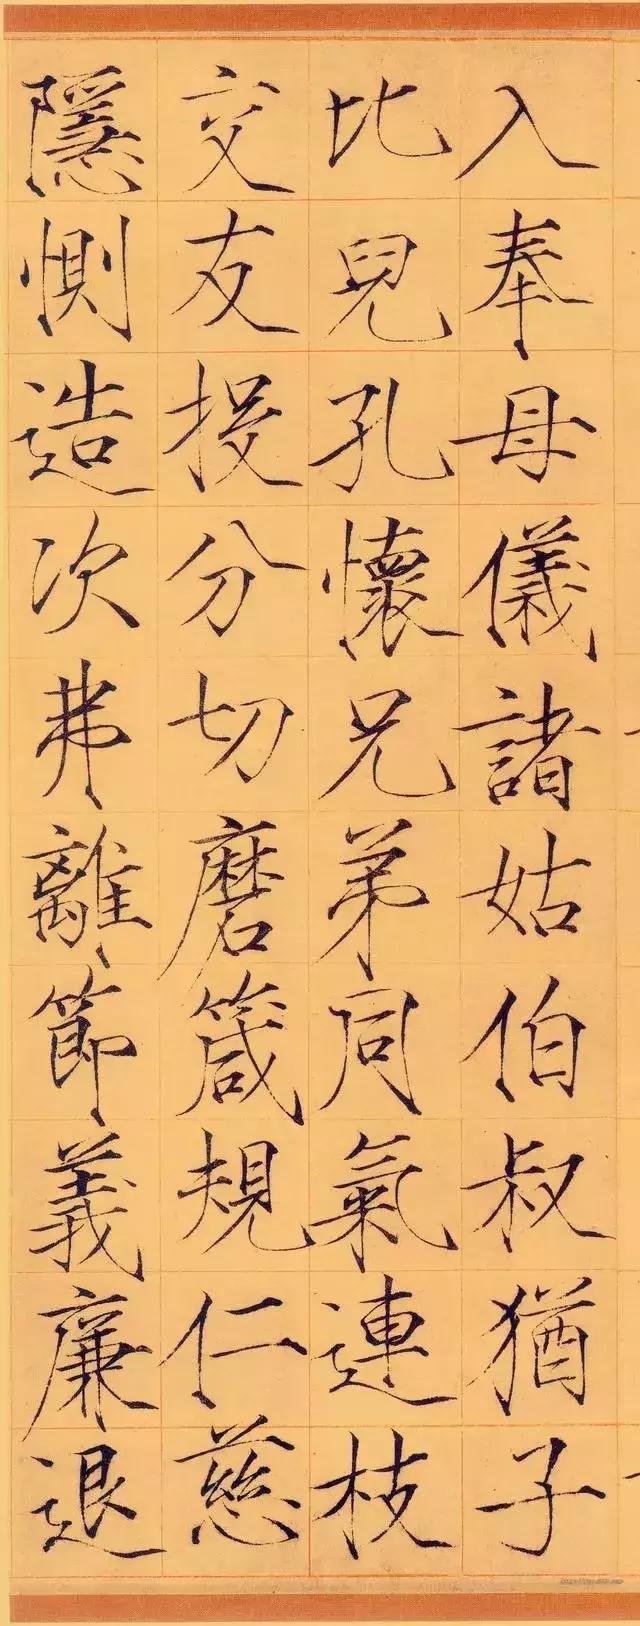 入奉母儀諸姑伯叔猶子
比兒孔懷兄弟同氣連枝
交友投分切磨箴規仁慈
隱惻造次弗離節義廉退